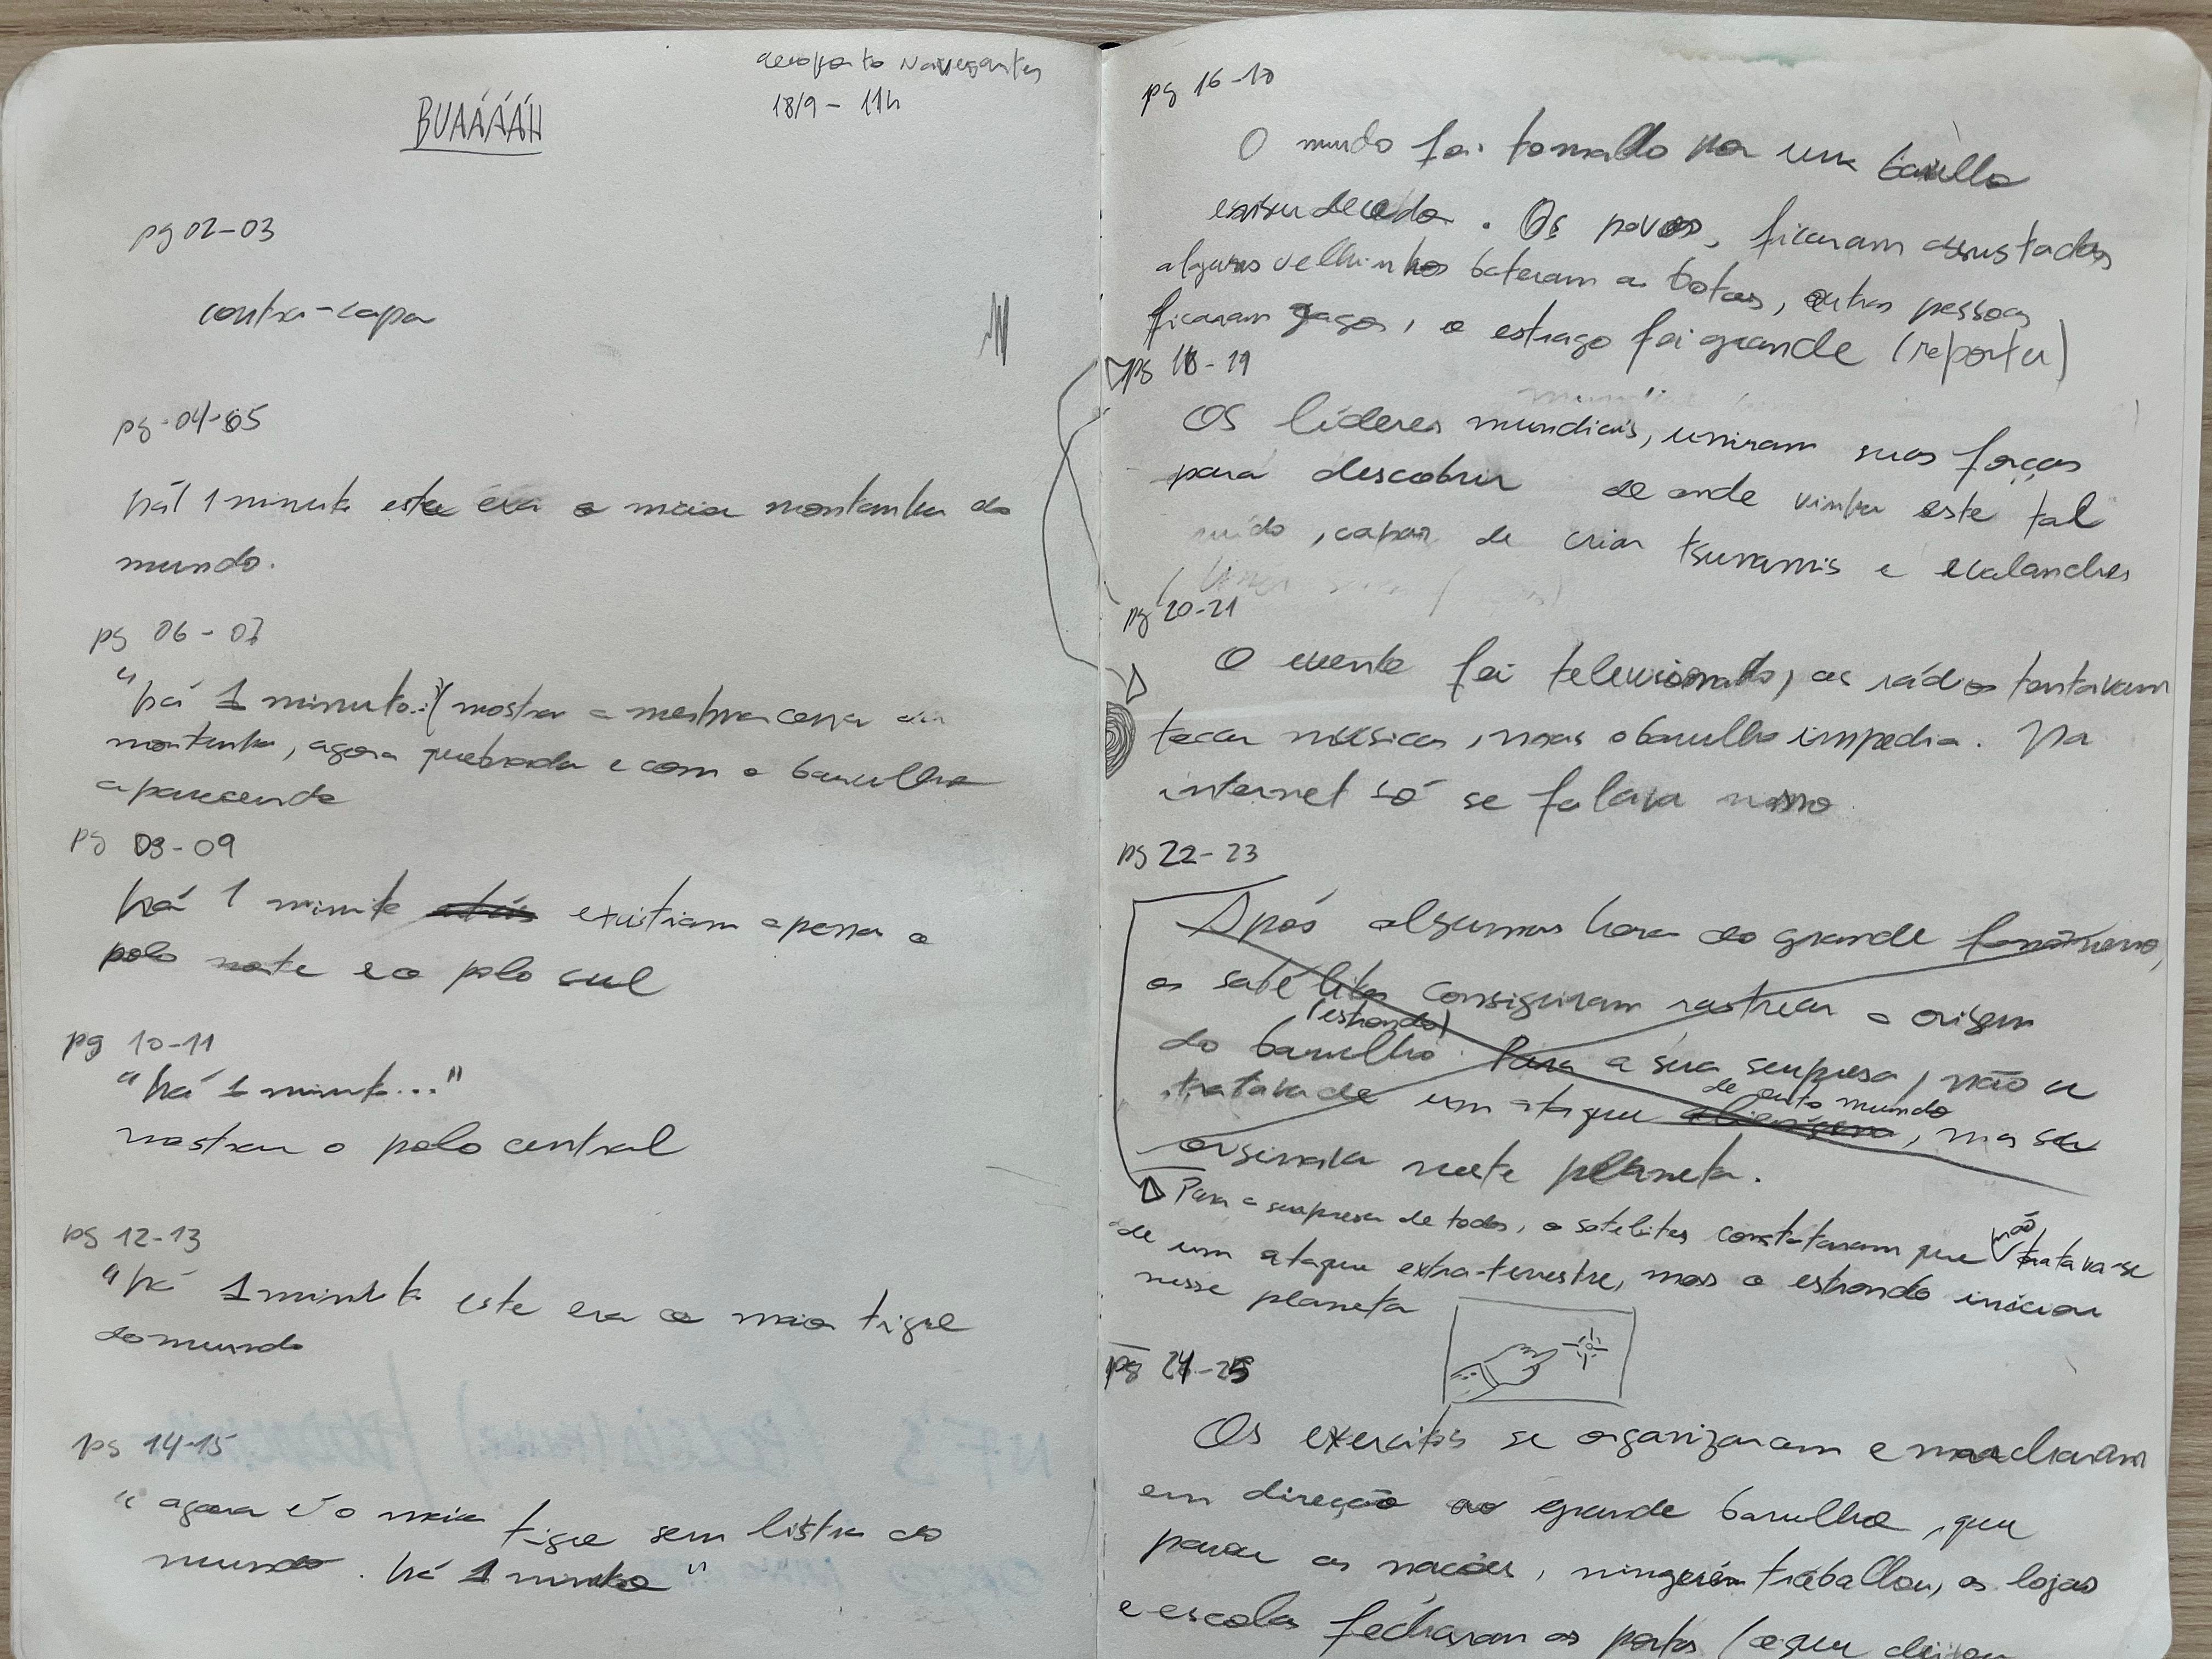 aeroporto Navegantes
18/9 - 11h
BUÁÁÁÁH
pg 02-03
contra-capa
pg-04-05
há 1 minuto este era a maior montanha do
mundo.
pg 06-07
"há 1 minuto..." (mostra a mesma cena da
montanha, agora quebrada e com o barulho
aparecendo
pg 08-09
há 1 minuto atrás existiam apenas o
polo norte e o polo sul
pg 10-11
"há 1 minuto..."
mostra o polo central
pg 12-13
"há 1 minuto este era o maior tigre
do mundo
pg 14-15
"agora é o maior tigre sem listra do
mundo. há 1 minuto"
pg 16-17
O mundo foi tomado por um barulho
ensurdecedor. Os povos, ficaram assustados
alguns velhinhos bateram as botas, outras pessoas
ficaram gagas, o estrago foi grande (reporter)
pg 18-19
Os líderes mundiais, uniram suas forças
para descobrir de onde vinha este tal
ruído, capaz de criar tsunamis e avalanches
pg 20-21
O evento foi televisionado, as rádios tentavam
tocar músicas, mas o barulho impedia. Na
internet só se falava nisso
pg 22-23
Após algumas horas do grande fenômeno,
os satélites conseguiram rastrear a origem
(estrondo)
do barulho. Para a sua surpresa, não se
de outro mundo
tratava de um ataque alienígena, mas se
originava neste planeta.
Para a surpresa de todos, o satelites constataram que não tratava-se
de um ataque extra-terrestre, mas o estrondo iniciou
nesse planeta
pg 24-25
Os exercitos se organizaram e marcharam
em direção ao grande barulho, que
parou as nações, ninguém trabalhou, as lojas
e escolas fecharam as portas (o que deixou